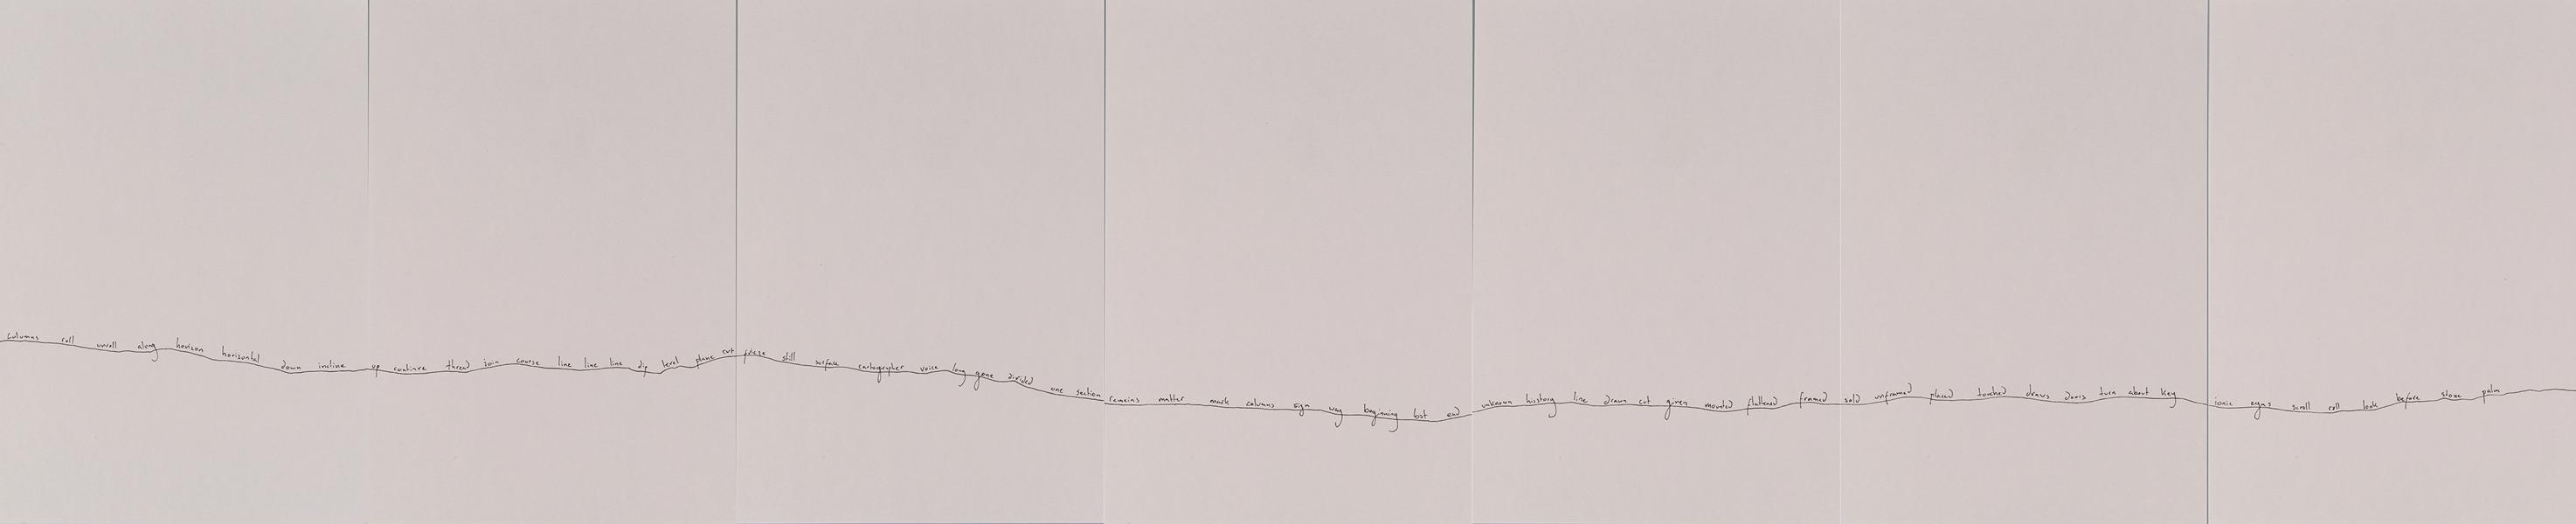 columns roll unroll along horizon horizontal down incline up continue thread join course line line line dip level plane cut frieze still surface cartographer voice long gone divided one section remains matter mark columns sign way beginning lost end unknown history line drawn cut given mounted flattened framed sold unframed placed touched draws doors turn about key ionic eyes scroll roll look before stone palm